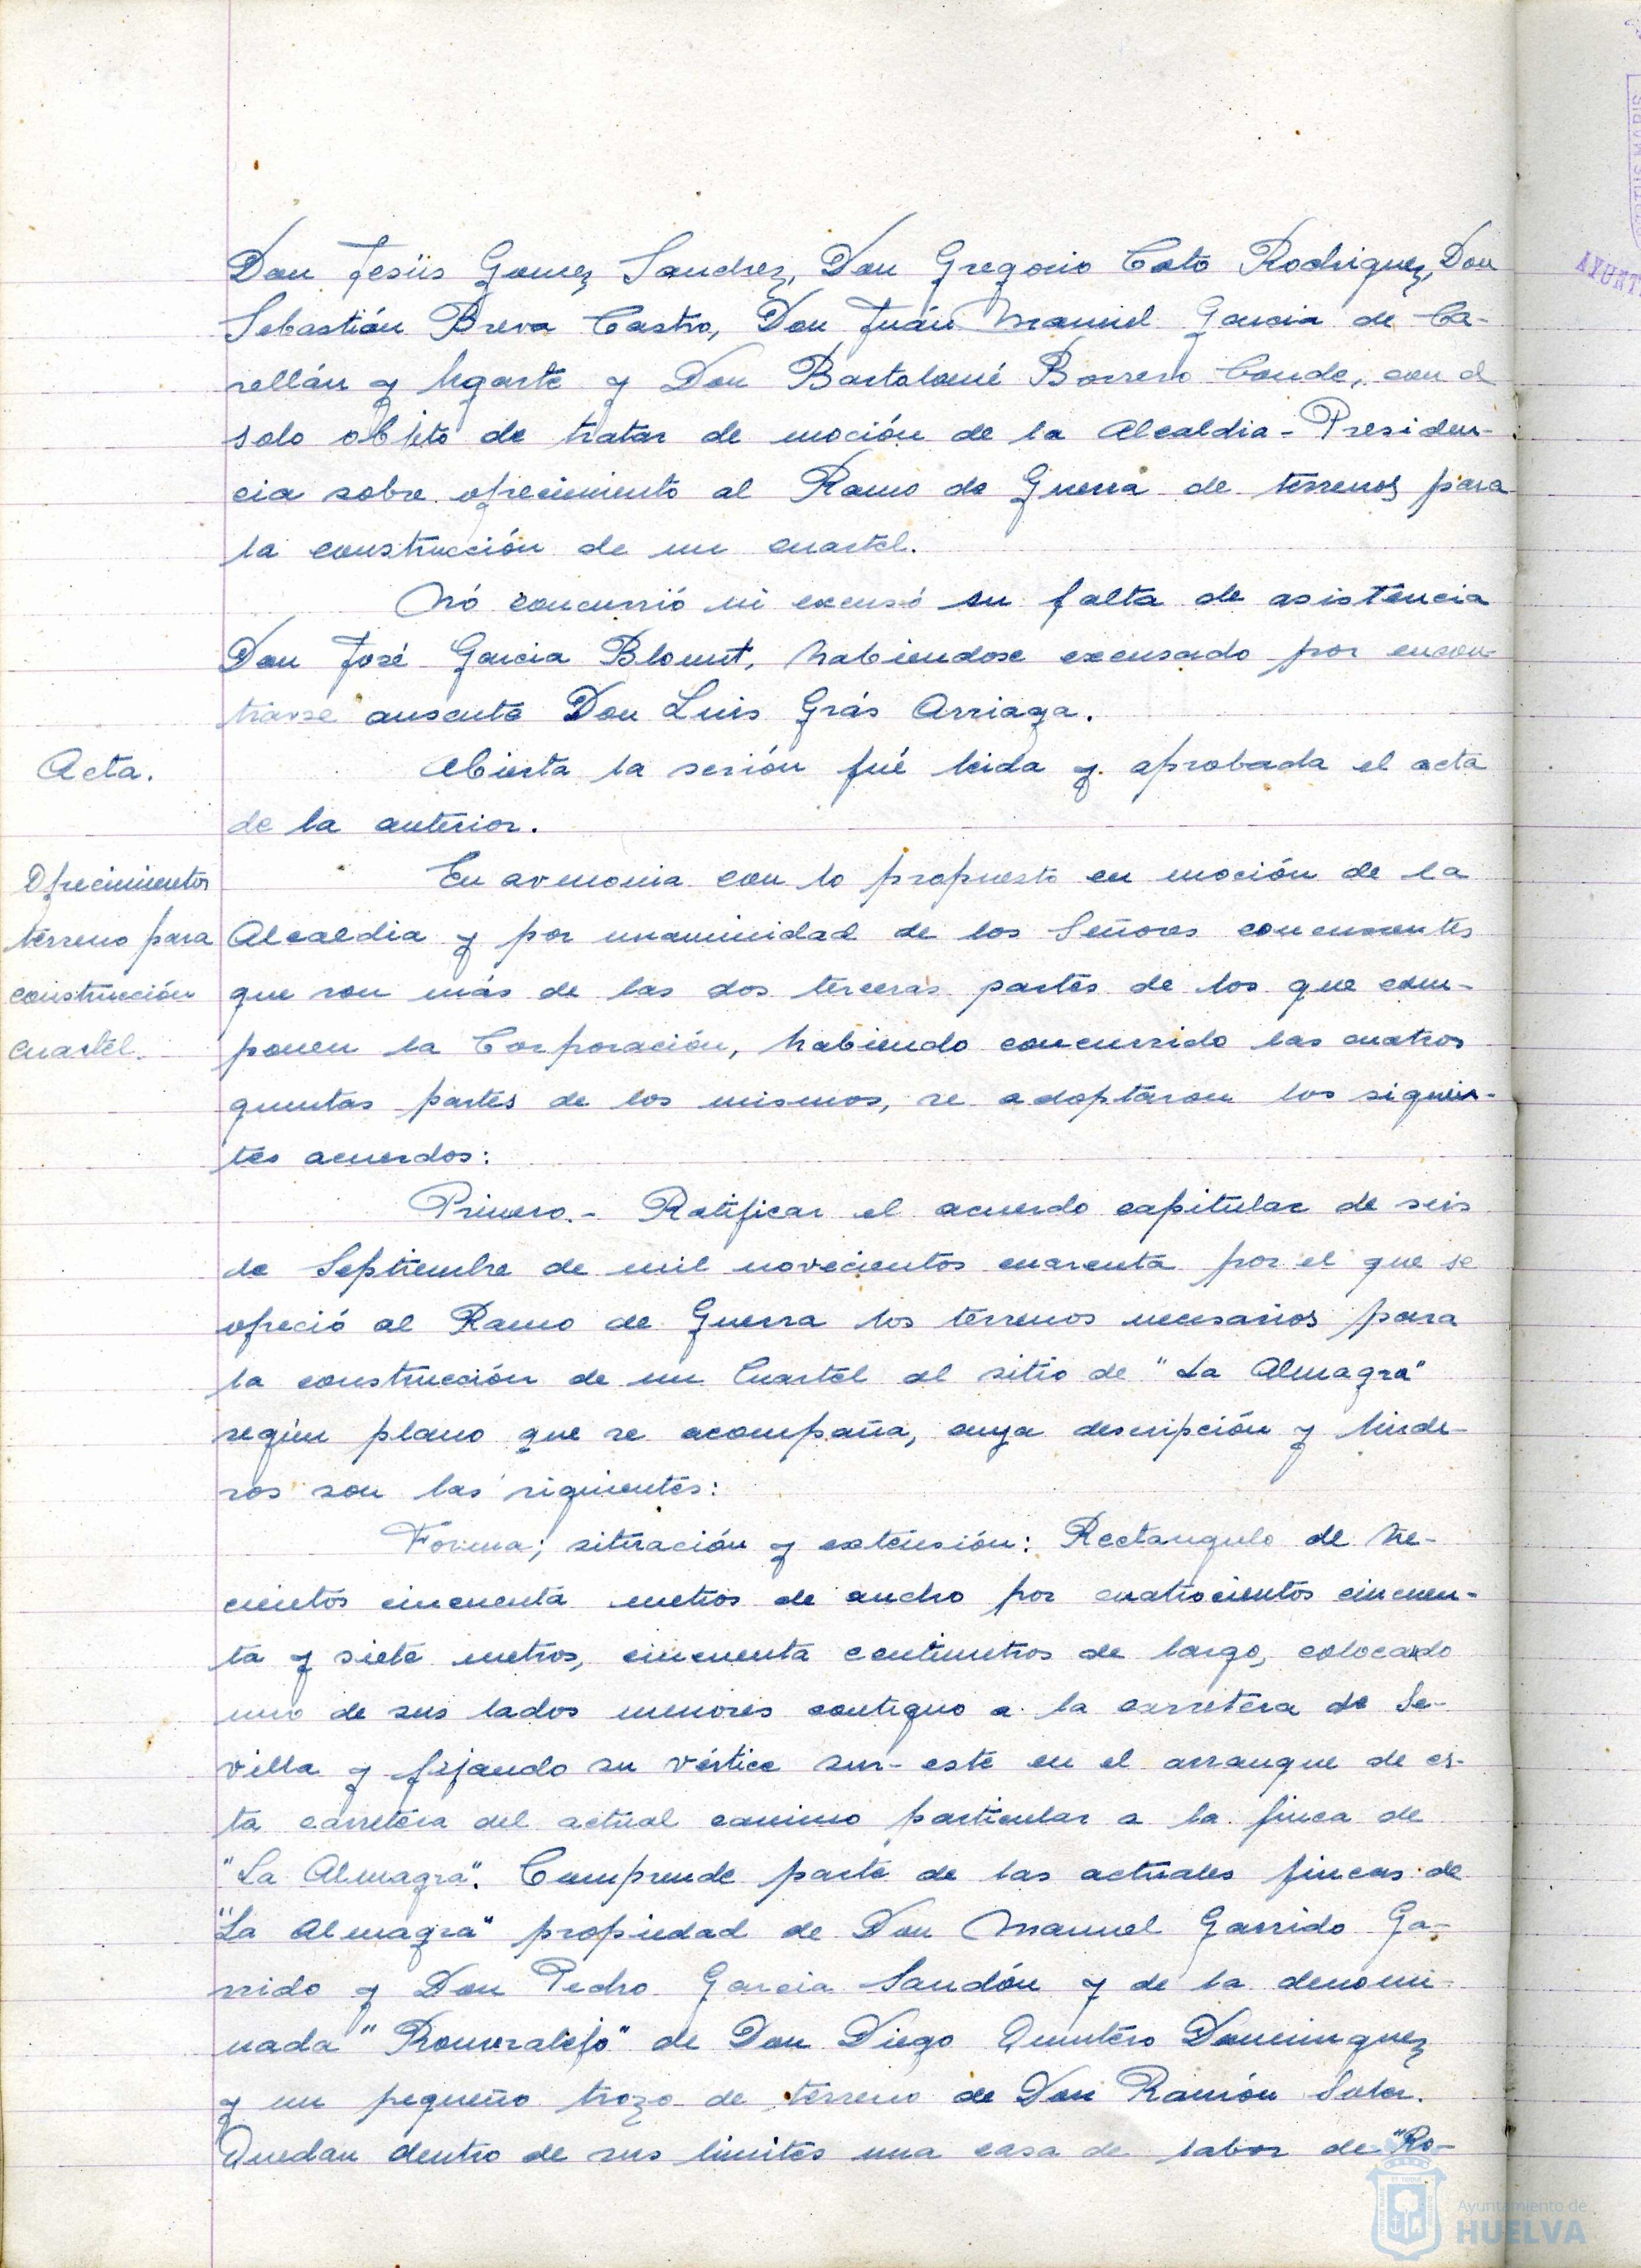 Don Jesús Gomez Sanchez, Don Gregorio Coto Rodriguez, Don
Sebastián Breva Castro, Don Juán Manuel Garcia de Ca-
rellán y Ugarte y Don Bartolomé Borrero Conde, con el
solo objeto de tratar de moción de la Alcaldia-Presiden-
cia sobre ofrecimiento al Ramo de Guerra de terrenos para
la construcción de un cuartel.
Nó concurrió ni excusó su falta de asistencia
Don José Garcia Blount, habiendose excusado por encon-
trarse ausente Don Luis Grás Arriaga.
Acta.
Abierta la sesión fué leida y aprobada el acta
de la anterior.
Ofrecimientos
terreno para
construcción
cuartel.
En armonia con lo propuesto en moción de la
Alcaldia y por unanimidad de los Señores concurrentes
que son más de las dos terceras partes de los que com-
ponen la Corporación, habiendo concurrido las cuatros
quintas partes de los mismos, se adoptaron los siguien-
tes acuerdos:
Primero.- Ratificar el acuerdo capitular de seis
de Septiembre de mil novecientos cuarenta por el que se
ofreció al Ramo de Guerra los terrenos necesarios para
la construcción de un Cuartel al sitio de "La Almagra"
según plano que se acompaña, cuya descripción y linde-
ros son las siguientes:
Forma; situación y extensión: Rectangulo de tre-
cientos cincuenta metros de ancho por cuatrocientos cincuen-
ta y siete metros, cincuenta centimetros de largo, colocando
uno de sus lados menores contiguo a la carretera de Se-
villa y fijando su vértice sur-este en el arranque de es-
ta carretera del actual camino particular a la finca de
"La Almagra". Comprende parte de las actuales fincas de
"La Almagra" propiedad de Don Manuel Garrido Ga-
rrido y Don Pedro Garcia Sandón y de la denomi-
nada "Romeralejo" de Don Diego Quintero Dominguez
y un pequeño trozo de terreno de Don Ramón Soler.
Quedan dentro de sus limites una casa de labor de "Ro-
Ayuntamiento de
HUELVA